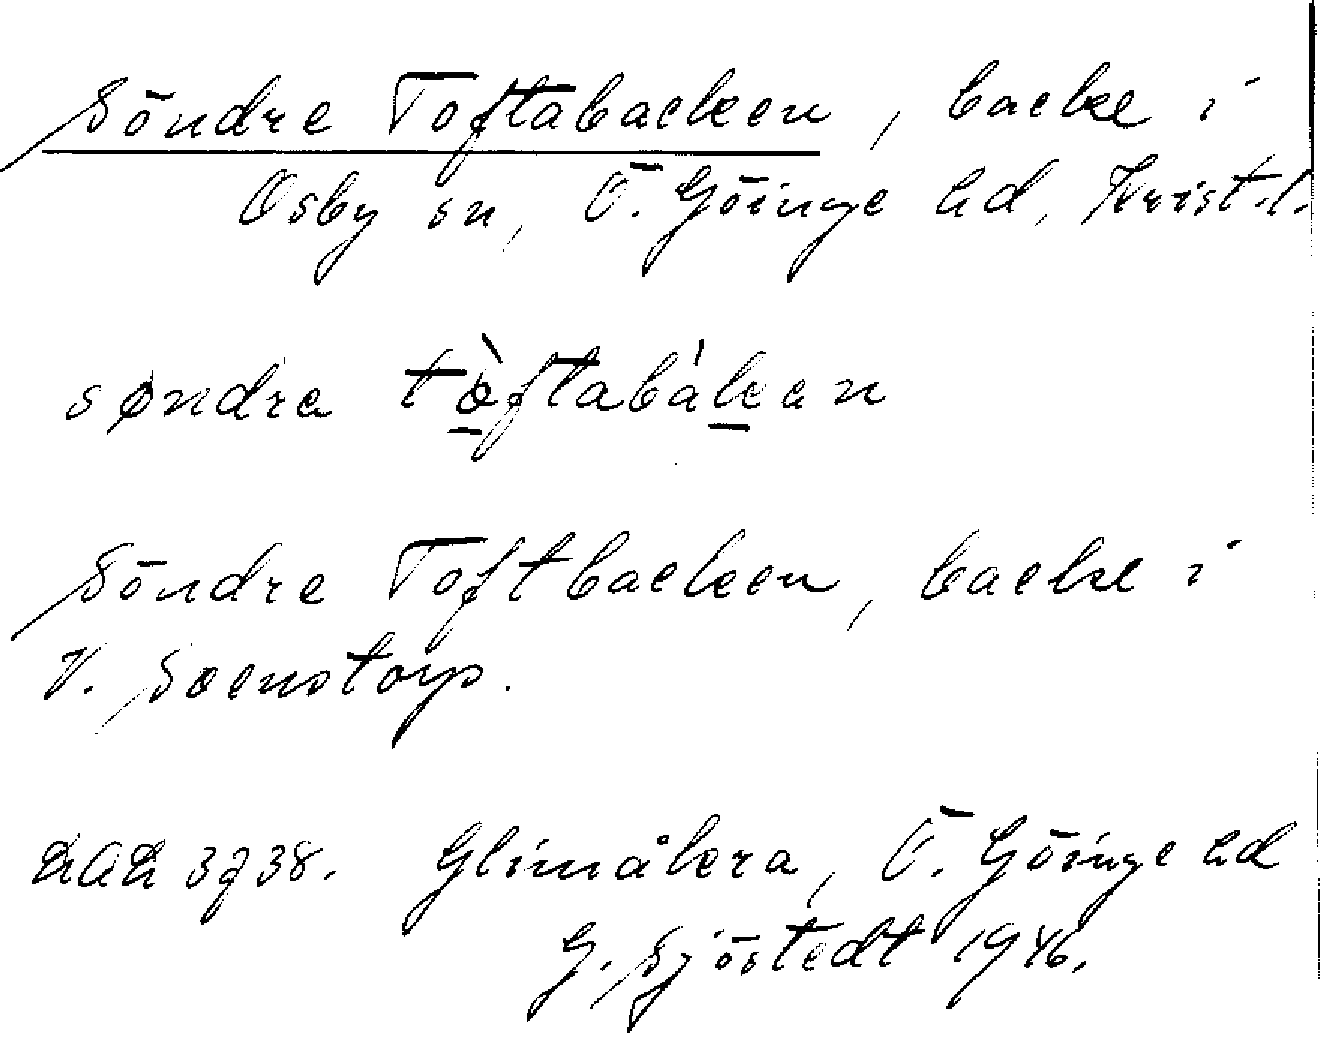 Söndre Toftabacken, backe i
Osby sn, Ö. Göinge hd, Krist.l.
søndra tòftabákan
Söndre Toftbacken, backe i
V. Svenstorp.
LAL 3738. Glimåkra, Ö. Göinge hd
G. Sjöstedt 1946.